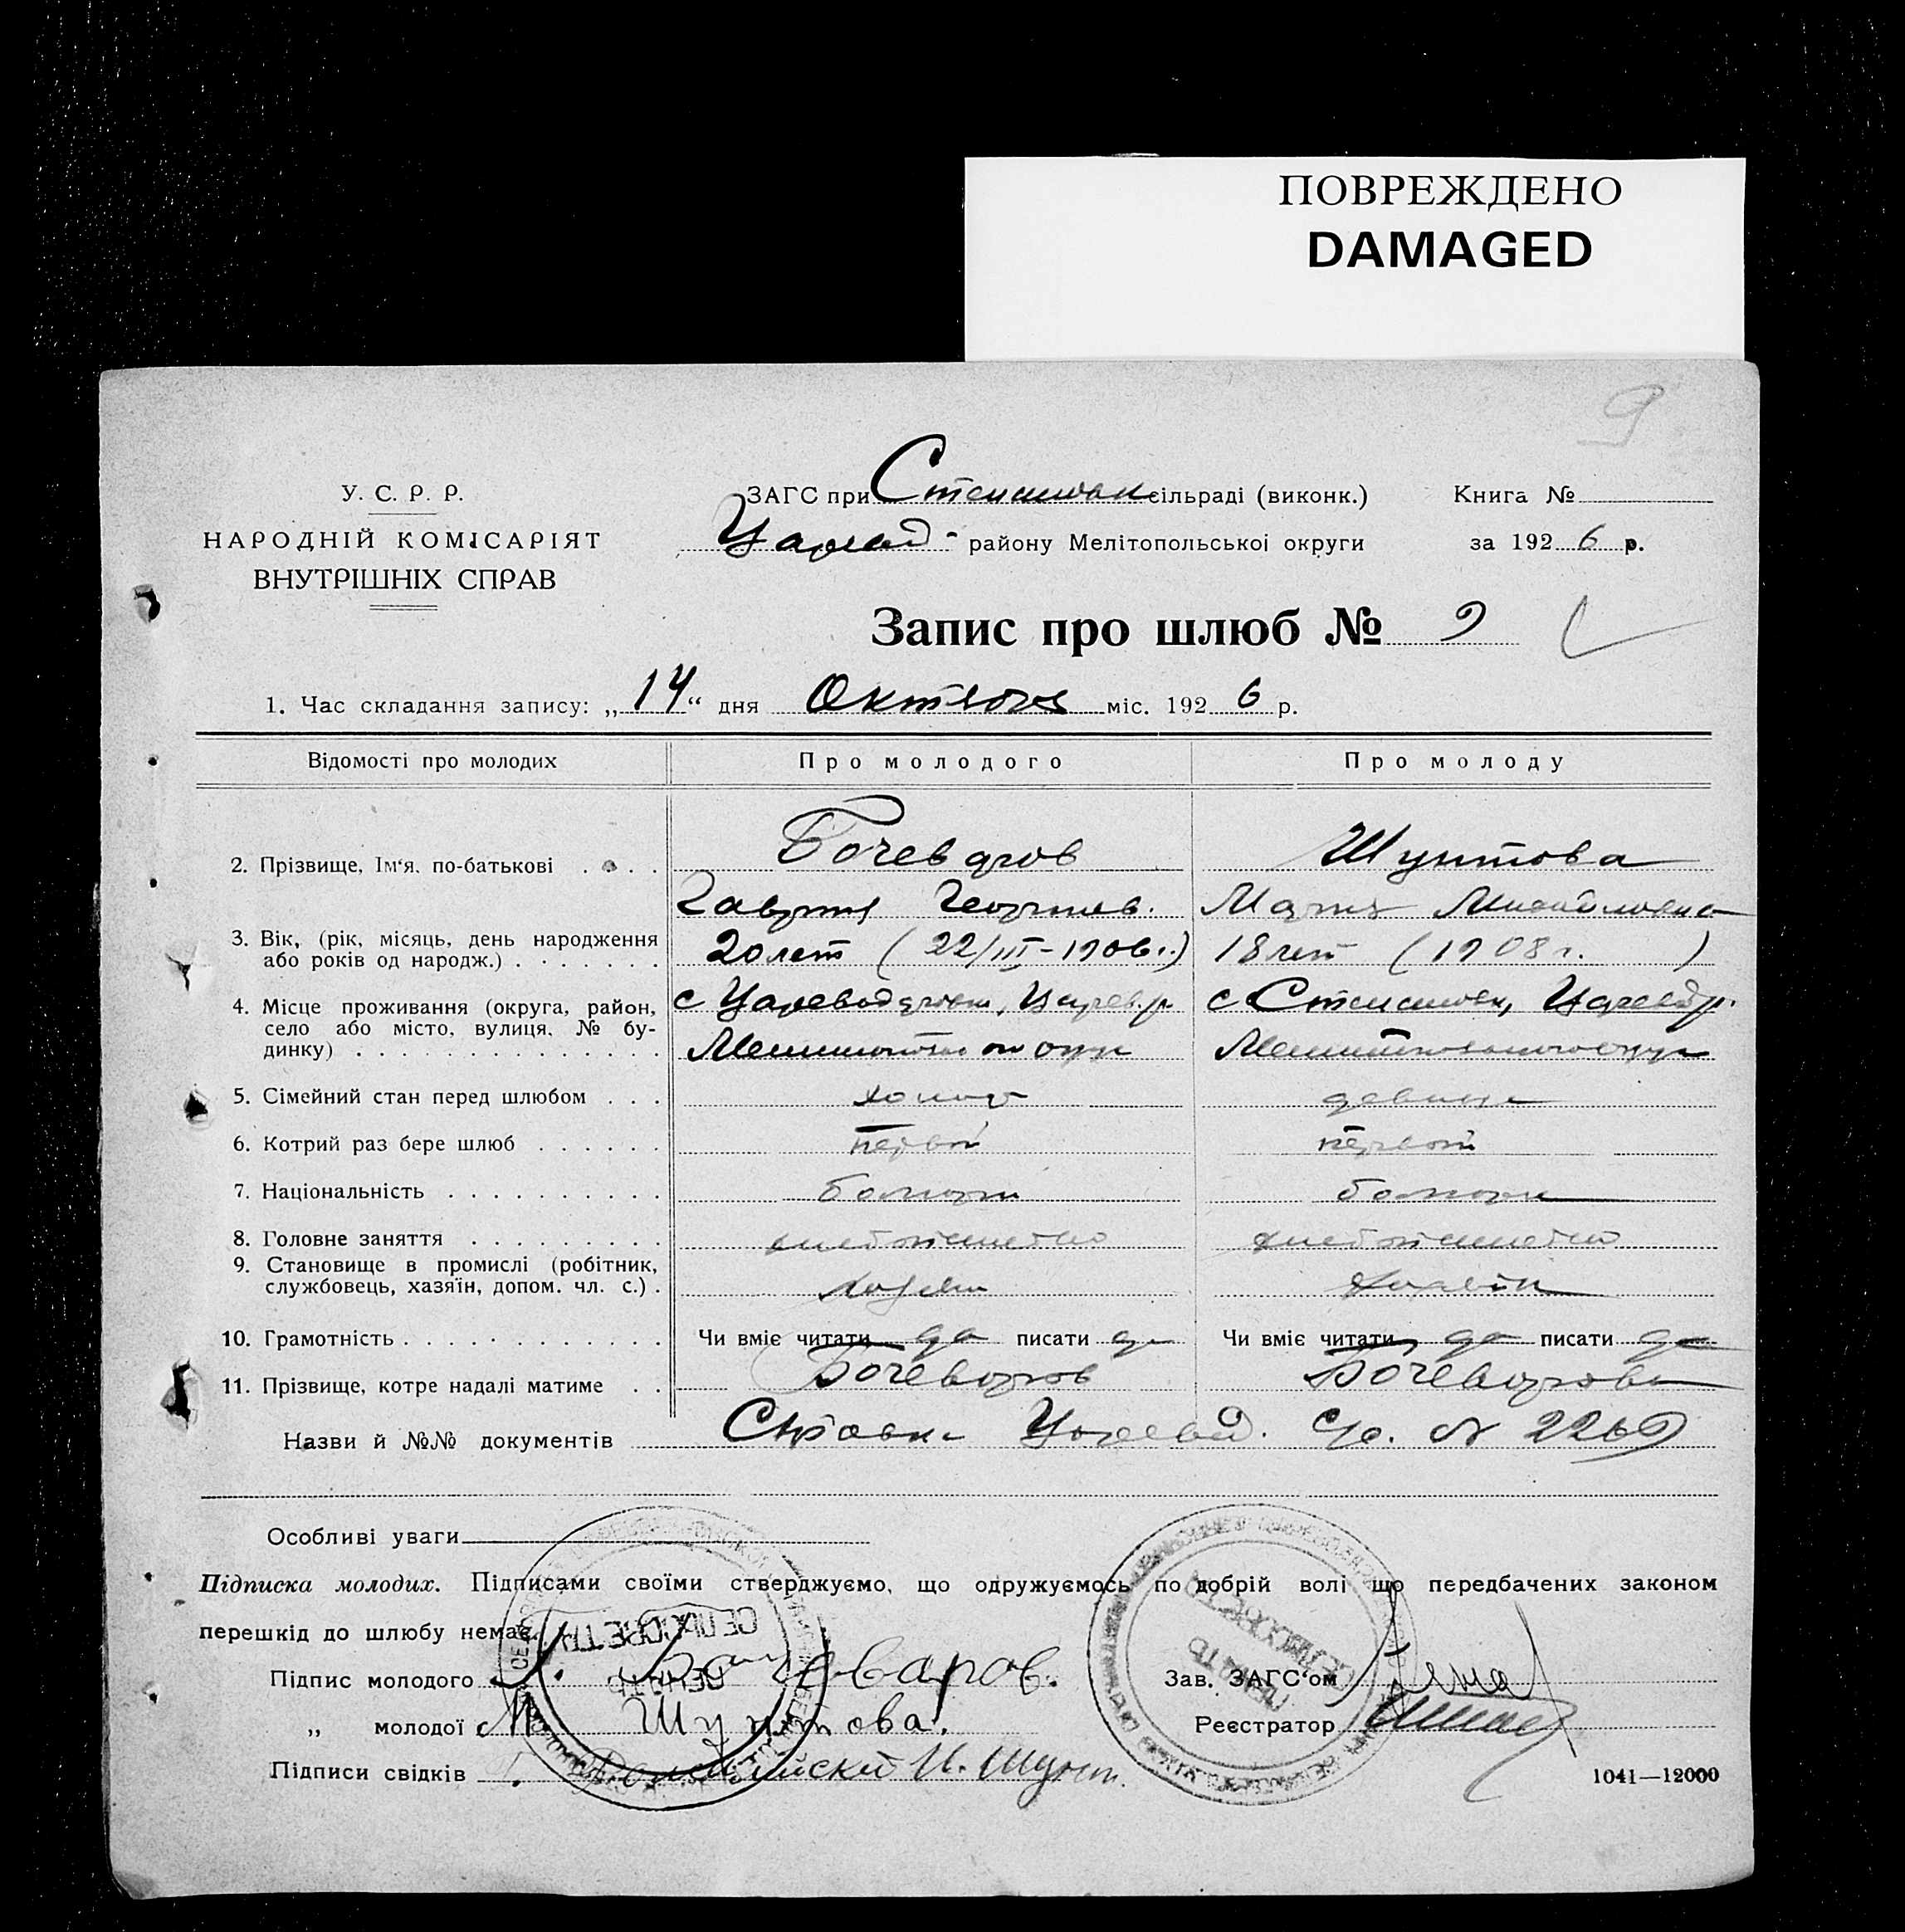 ПОВРЕЖДЕНО
DAMAGED
9
У. С. Р. Р.
НАРОДНІЙ КОМІСАРІЯТ
ВНУТРІШНІХ СПРАВ
ЗАГС при сільраді (виконк.) Книга №
Царевод- району Мелітопольської округи за 1926 р.
Запис про шлюб № 9
1. Час складання запису: „14“ дня Октября міс. 1926 р.
Відомості про молодих Про молодого Про молоду
2. Прізвище, Ім‘я, по-батькові . . . . Бочеваров Шунтова
Гаврил Георгиев. Мария Михайловна
3. Вік, (рік, місяць, день народження
або років од народж.) . . . . . . . 20 лет (22/III-1906 г.) 18 лет (1908 г. )
4. Місце проживання (округа, район,
село або місто, вулиця, № бу-
динку) . . . . . . . . . . . . . . с Цареводаровки, Царев. р. Мелитопольского окр с Степановки, Царевод р. Мелитопольского окр
5. Сімейний стан перед шлюбом . . . холост девица
6. Котрий раз бере шлюб . . . . . . первый первый
7. Національність . . . . . . . . . . болгарин болгарка
8. Головне заняття . . . . . . . . . хлебопашество хлебопашество
9. Становище в промислі (робітник,
службовець, хазяїн, допом. чл. с.) . хозяин
10. Грамотність . . . . . . . . . . . . Чи вміє читати да писати да Чи вміє читати да писати да
11. Прізвище, котре надалі матиме . . Бочеваров Бочеварова
Назви й №№ документів Справка Царевод. С/с. № 2269
Особливі уваги
Підписка молодих. Підписами своїми стверджуємо, що одружуємось по добрій волі що передбачених законом
перешкід до шлюбу немає.
Підпис молодого Г. Бочеваров. Зав. ЗАГС‘ом
„ молодої М Шунтова. Реєстратор
Підписи свідків И. Шунт.
1041—12000